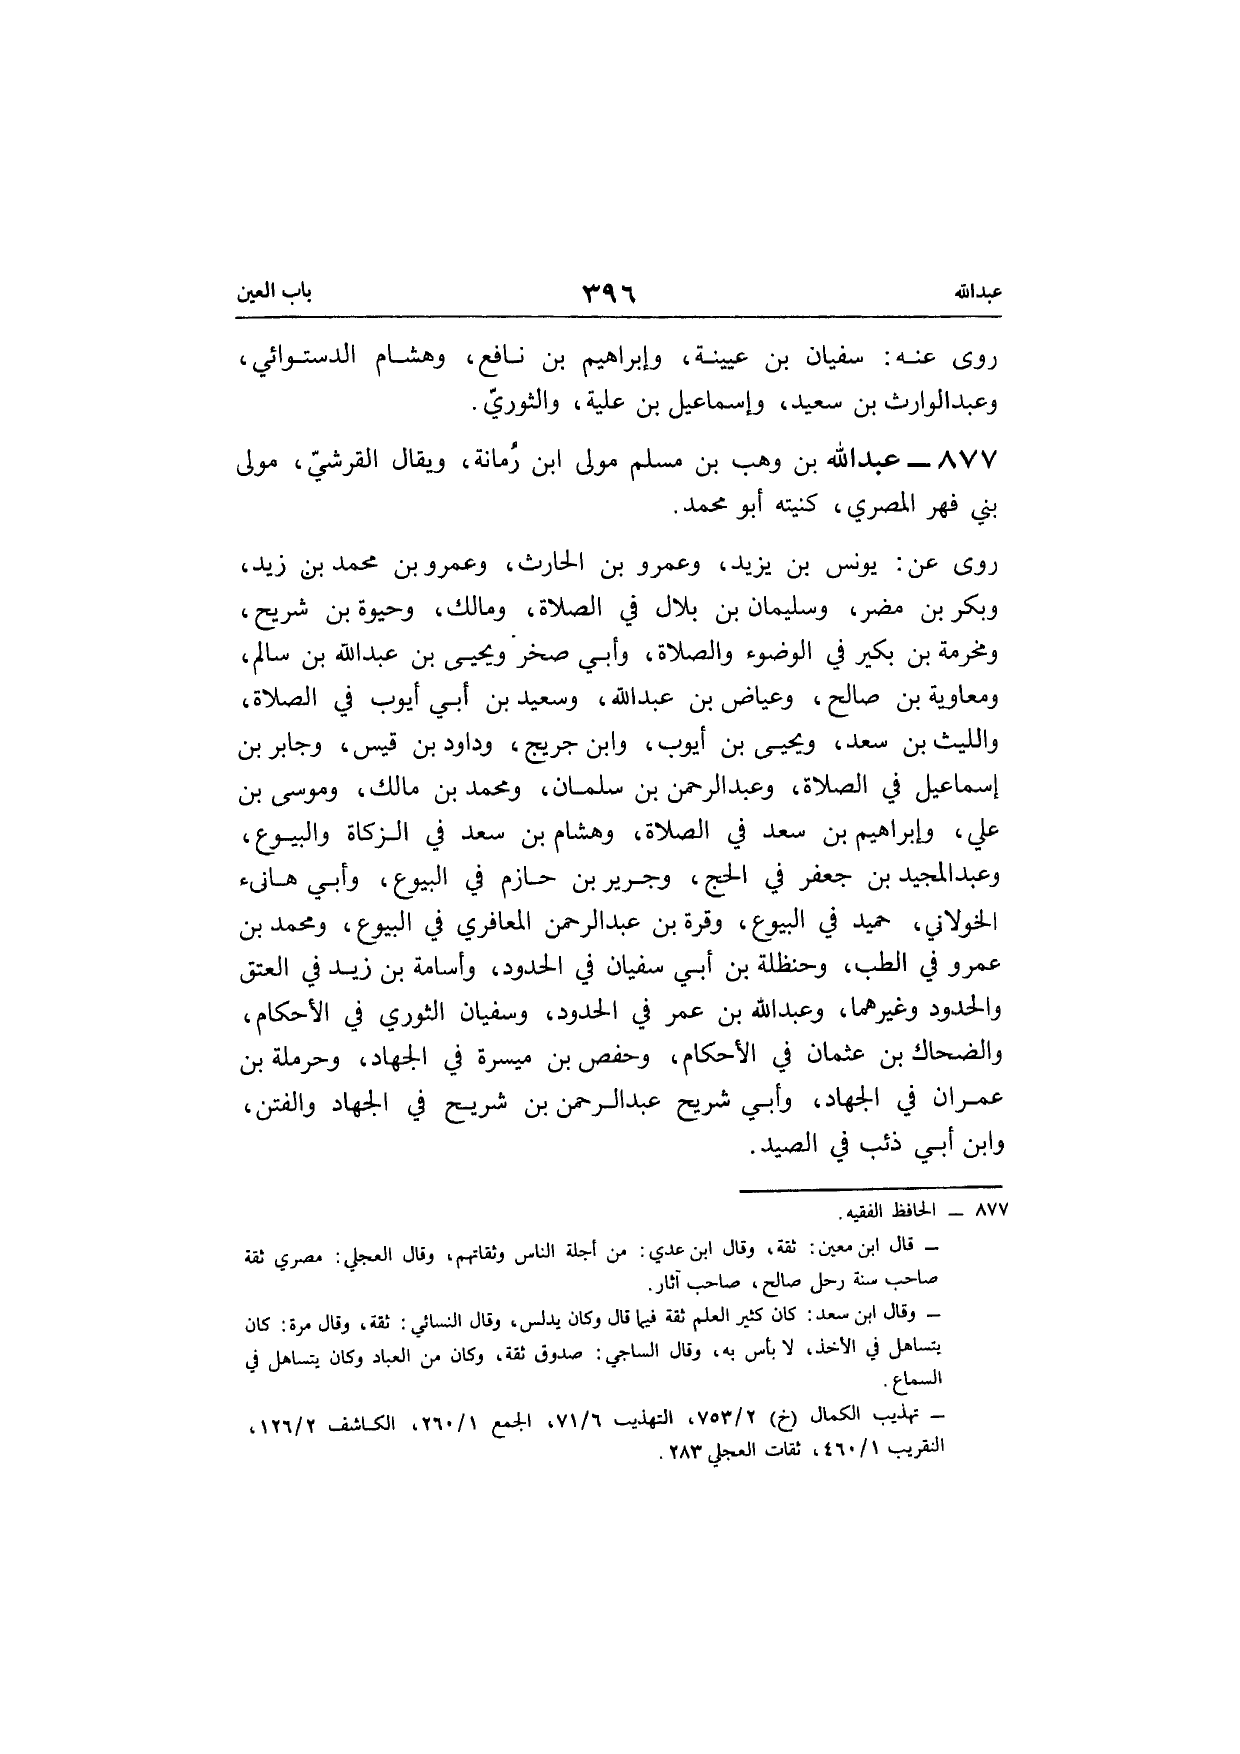 عبدالله ٣٩٦ باب العين
روى عنه: سفيان بن عيينة، وإبراهيم بن نافع، وهشام الدستوائي،
وعبدالوارث بن سعيد، وإسماعيل بن علية، والثوريّ.
٨٧٧ — عبدالله بن وهب بن مسلم مولى ابن رُمانة، ويقال القرشيّ، مولى
بني فهر المصري، كنيته أبو محمد.
روى عن: يونس بن يزيد، وعمرو بن الحارث، وعمرو بن محمد بن زيد،
وبكر بن مضر، وسليمان بن بلال في الصلاة، ومالك، وحيوة بن شريح،
ومخرمة بن بكير في الوضوء والصلاة، وأبي صخر ويحيى بن عبدالله بن سالم،
ومعاوية بن صالح، وعياض بن عبدالله، وسعيد بن أبي أيوب في الصلاة،
والليث بن سعد، ويحيى بن أيوب، وابن جريج، وداود بن قيس، وجابر بن
إسماعيل في الصلاة، وعبدالرحمن بن سلمان، ومحمد بن مالك، وموسى بن
علي، وإبراهيم بن سعد في الصلاة، وهشام بن سعد في الزكاة والبيوع،
وعبدالمجيد بن جعفر في الحج، وجرير بن حازم في البيوع، وأبي هانىء
الخولاني، حميد في البيوع، وقرة بن عبدالرحمن المعافري في البيوع، ومحمد بن
عمرو في الطب، وحنظلة بن أبي سفيان في الحدود، وأسامة بن زيد في العتق
والحدود وغيرهما، وعبدالله بن عمر في الحدود، وسفيان الثوري في الأحكام،
والضحاك بن عثمان في الأحكام، وحفص بن ميسرة في الجهاد، وحرملة بن
عمران في الجهاد، وأبي شريح عبدالرحمن بن شريح في الجهاد والفتن،
وابن أبي ذئب في الصيد.
٨٧٧ — الحافظ الفقيه.
— قال ابن معين: ثقة، وقال ابن عدي: من أجلة الناس وثقاتهم، وقال العجلي: مصري ثقة
صاحب سنة رحل صالح، صاحب آثار.
— وقال ابن سعد: كان كثير العلم ثقة فيما قال وكان يدلس، وقال النسائي: ثقة، وقال مرة: كان
يتساهل في الأخذ، لا بأس به، وقال الساجي: صدوق ثقة، وكان من العباد وكان يتساهل في
السماع.
— تهذيب الكمال (خ) ٧٥٣/٢، التهذيب ٧١/٦، الجمع ٢٦٠/١، الكاشف ١٢٦/٢،
التقريب ٤٦٠/١، ثقات العجلي ٢٨٣.